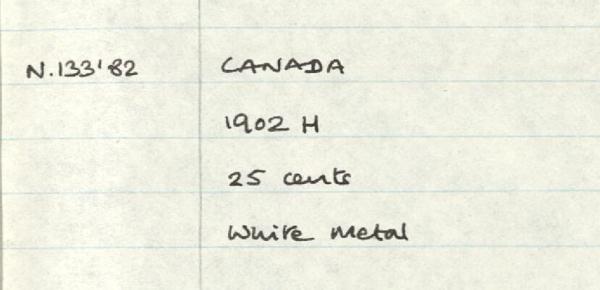 N.133'82 CANADA
1902 H
25 cents
White Metal